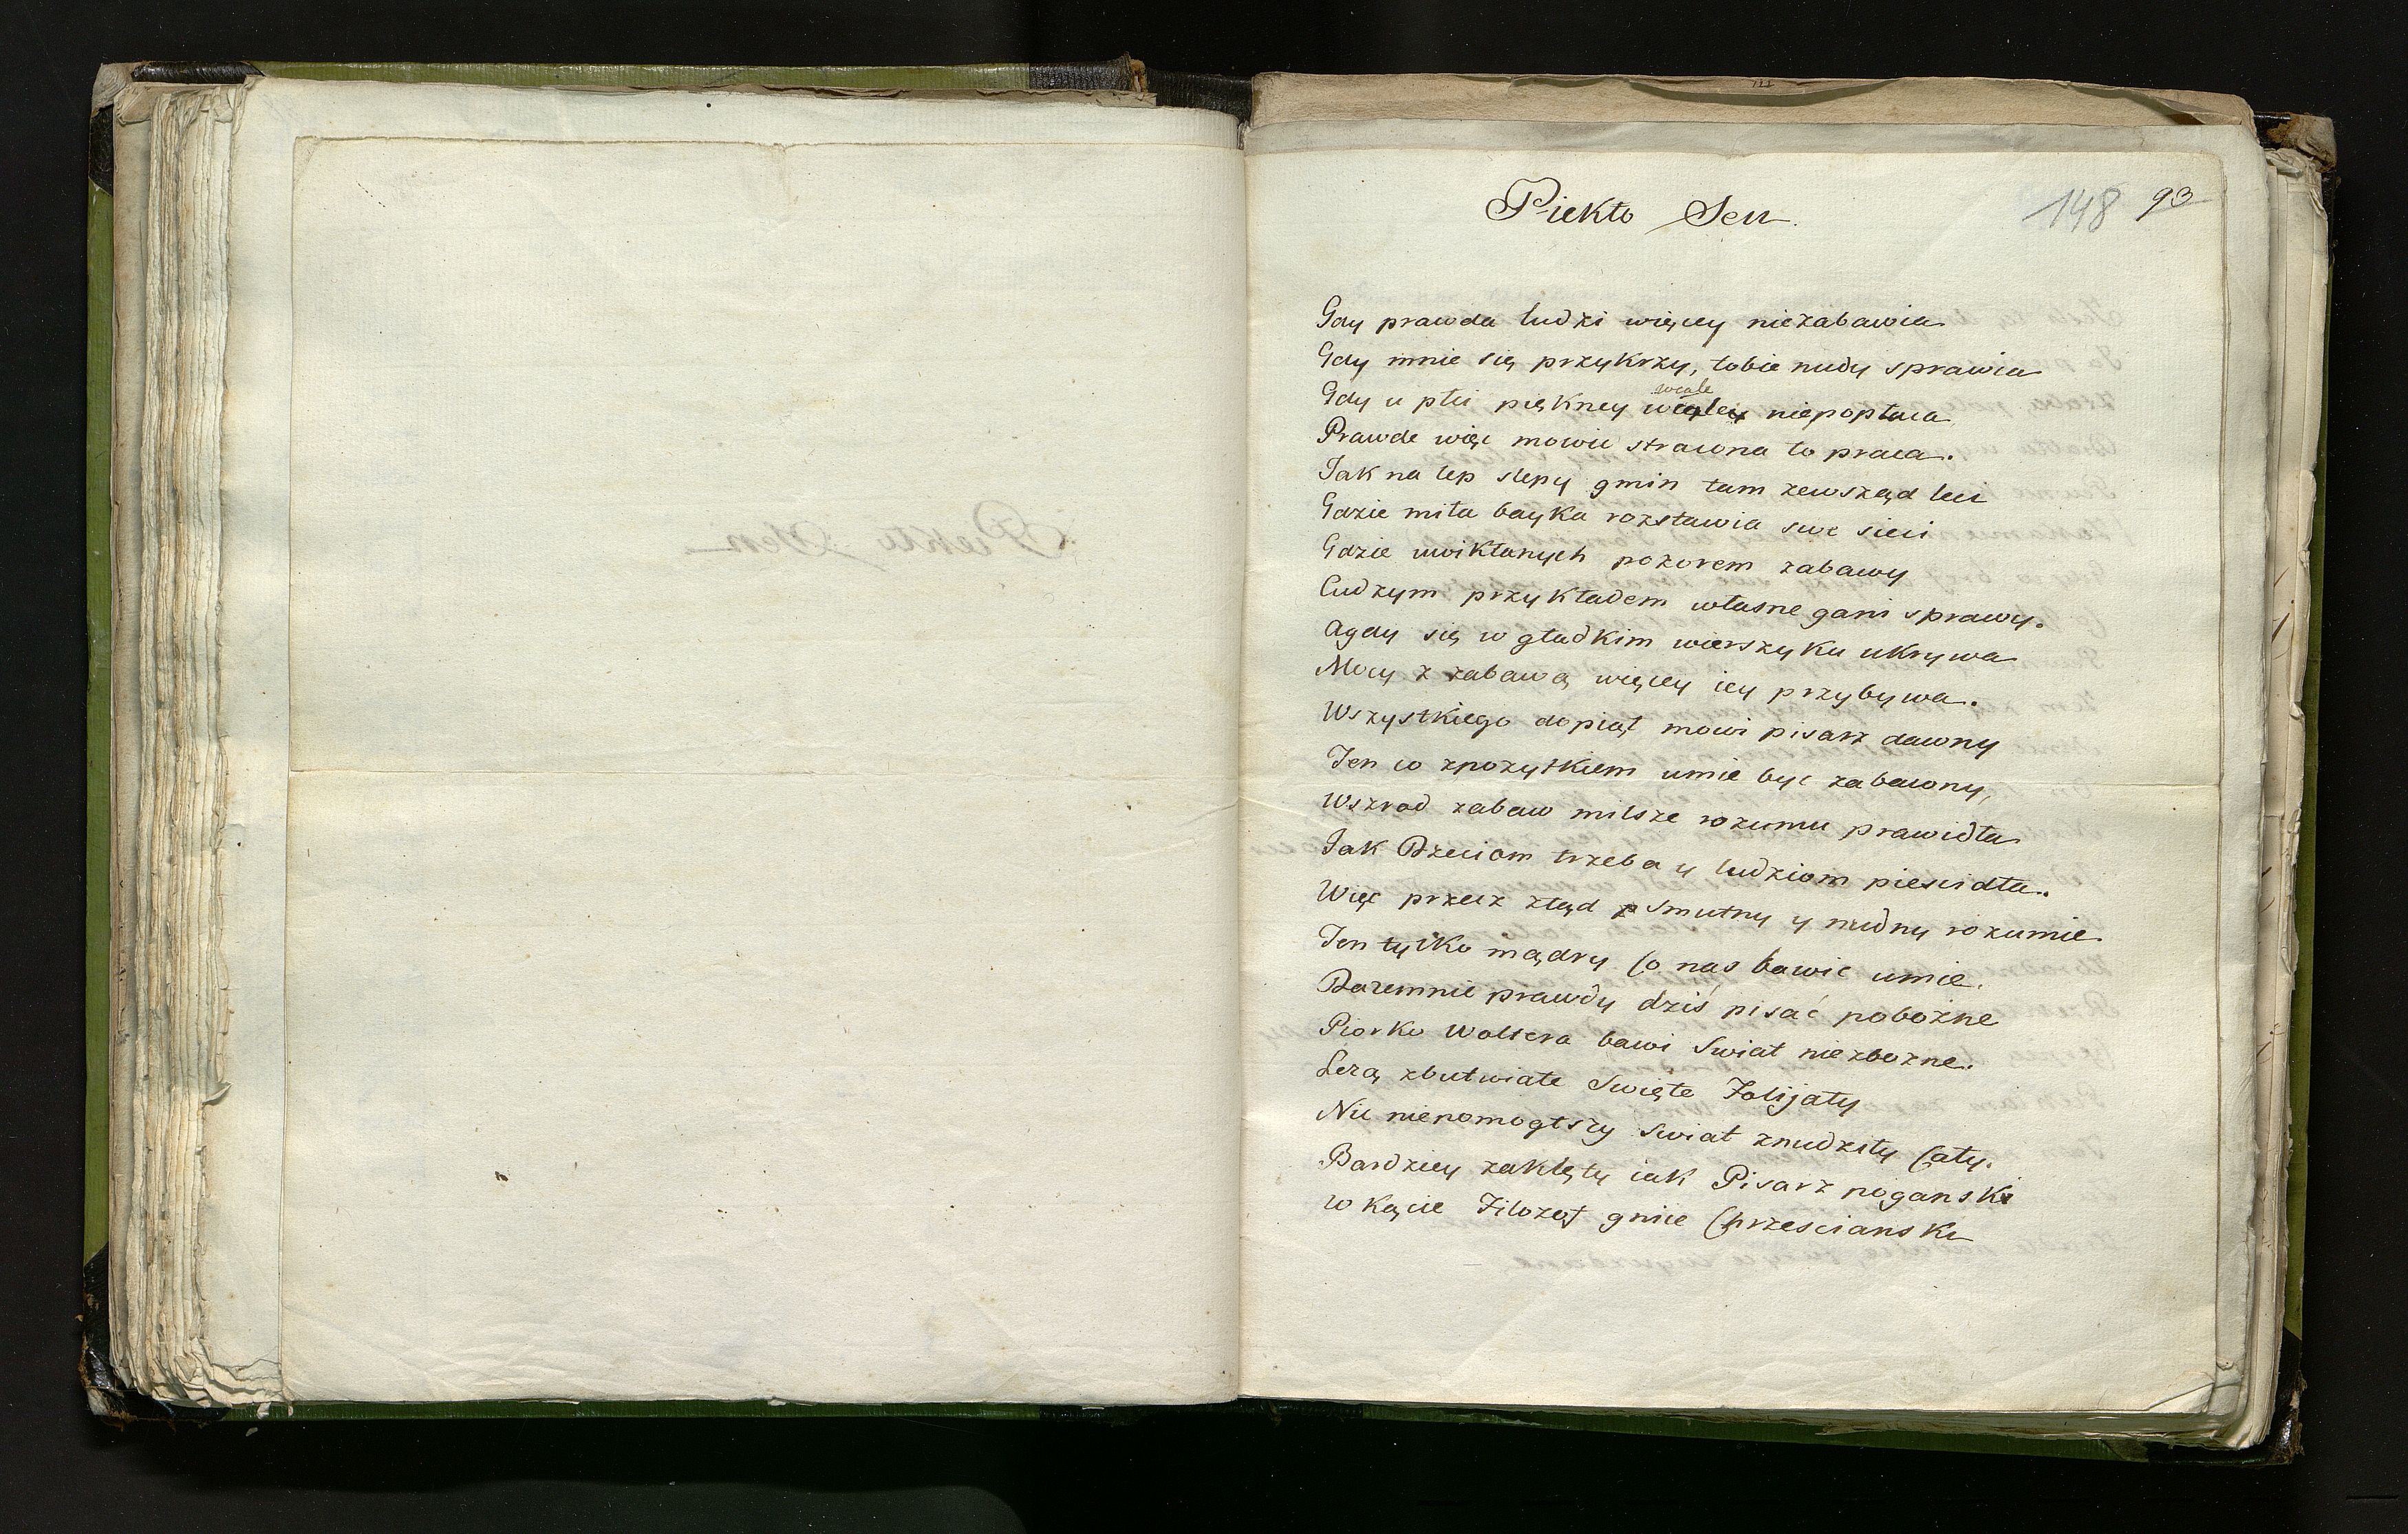 Piekło Sen.
148 93
Gdy prawda ludzi więcey niezabawia
Gdy mnie się przykrzy, tobie nudy sprawia
wcale
Gdy u płci piękney niepopłaca
Prawde więc mowic strawna to praca.
Jak na lep slepy gmin tam zewsząd leci
Gdzie miła bayka rozstawia swe sieci
Gdzie uwikłanych pozorem zabawy
Cudzym przykładem własne gani sprawy.
Agdy się w gładkim wierszyku ukrywa
Mocy z zabawą więcey icy przybywa.
Wszystkiego dopiął mowi pisarz dawny
Ten co zpożytkiem umie byc zabawny,
Wszrod zabaw milsze rozumu prawidła
Jak Dzieciom trzeba y ludziom piescidła.
Więc przecz ztąd smutny y nudny rozumie
Ten tylko mądry co nas bawic umie.
Daremnie prawdy dziś pisać pobożne
Piorko Woltera bawi Swiat niezbozne.
Leżą zbutwiałe Swięte Folijały
Nic niepomogłszy swiat znudziły cały.
Bardziey zaklęty iak Pisarz poganski
w kącie Filozof gnie Chrzescianski
Piekło Sen